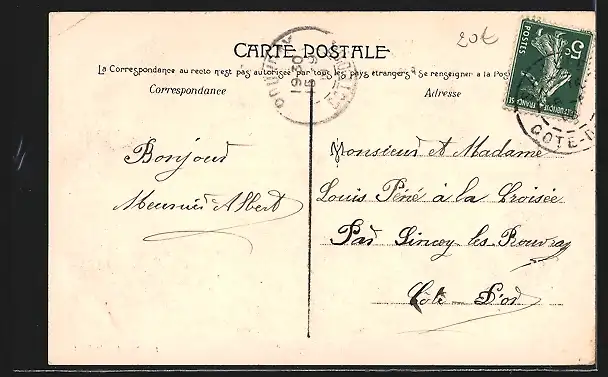 20€
CARTE POSTALE
La Correspondance au recto n'est pas autorisée par tous les pays étrangers (Se renseigner à la Pos
Correspondance
Adresse
5c
POSTES
REPUBLIQUE FRANÇAISE
COTE-D
Bonjour
Meunier Albert
Monsieur et Madame
Louis Péné à la Croisée
Par Sincey les Rouvray
Côte D'or